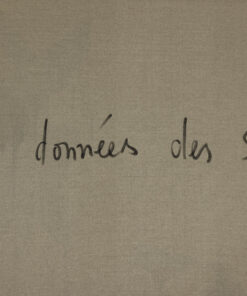 données des